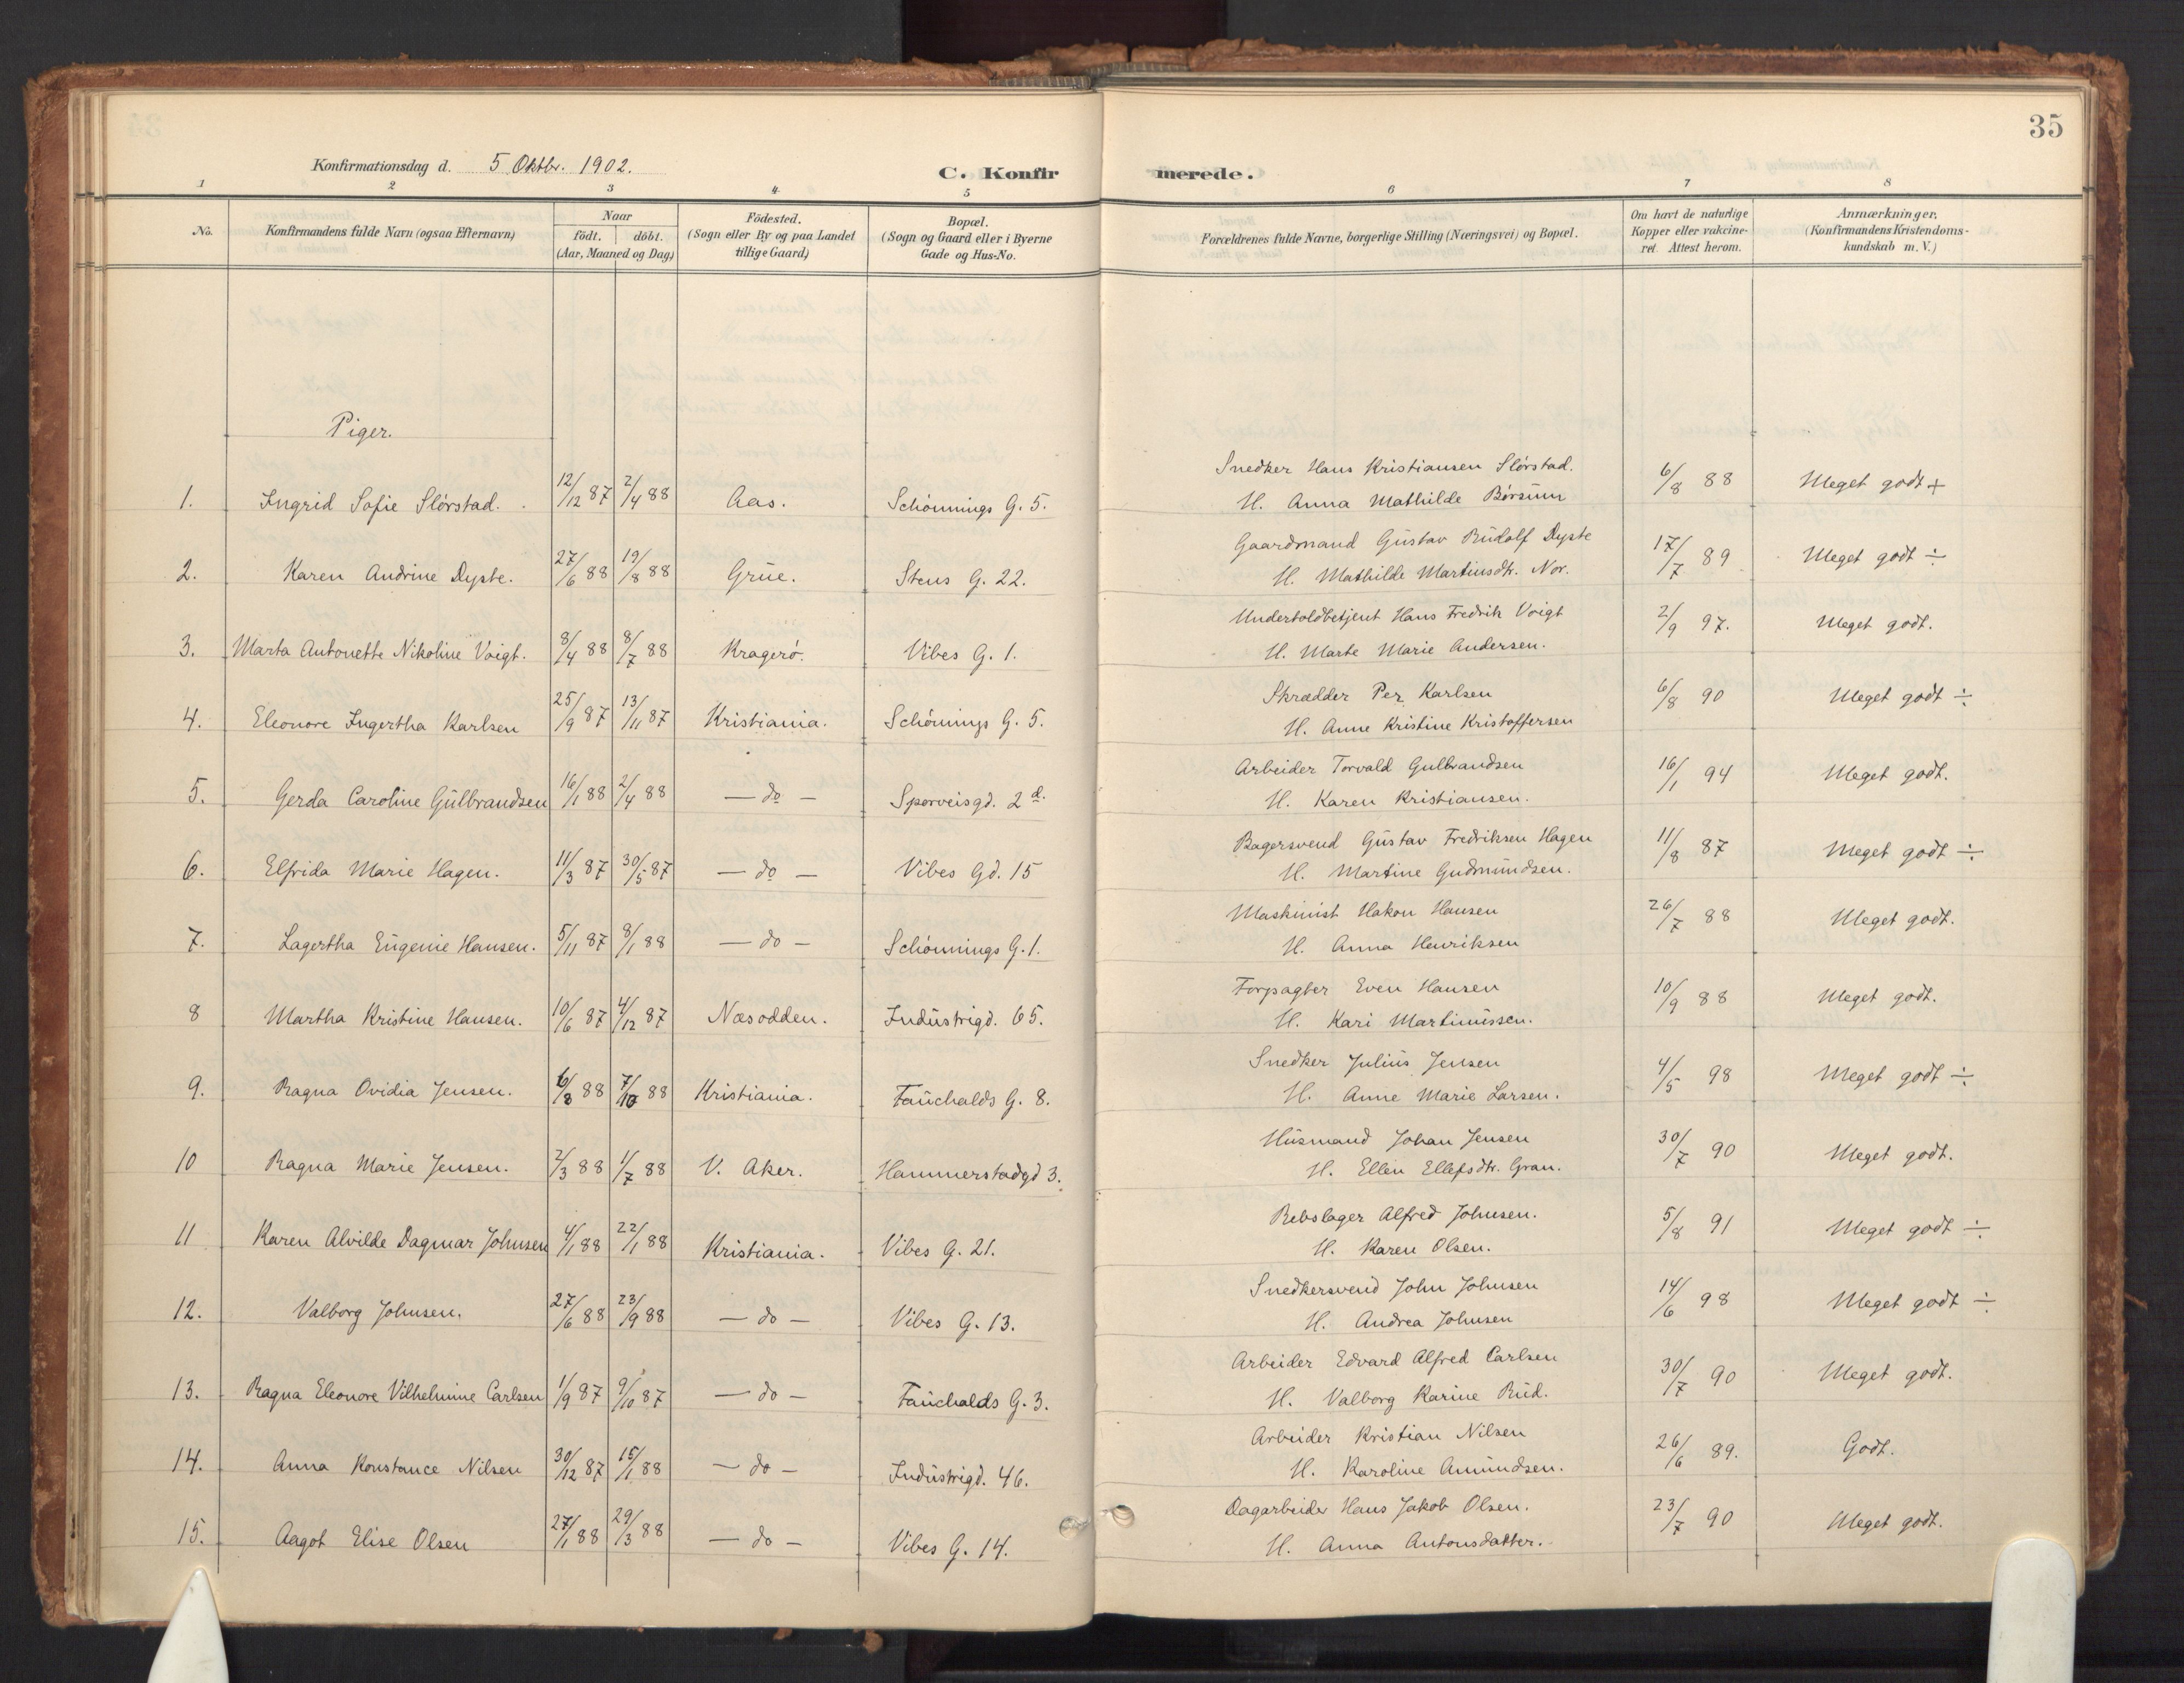 35
Konfirmationsdag d. 5 Oktbr. 1902.
C. Konfirmerede.
1 2 3 4 5 6 7 8
No.
Konfirmandens fulde Navn (ogsaa Efternavn)
Naar
födt. döbt.
(Aar, Maaned og Dag)
Födested.
(Sogn eller By og paa Landet
tillige Gaard)
Bopæl.
(Sogn og Gaard eller i Byerne
Gade og Hus-No.
Forældrenes fulde Navne, borgerlige Stilling (Næringsvei) og Bopæl.
Om havt de naturlige
Kopper eller vakcine-
ret. Attest herom.
Anmærkninger.
(Konfirmandens Kristendoms-
kundskab m. V.)
Piger.
1. Ingrid Sofie Slörstad. 12/12 87 2/4 88 Aas. Schönnings G. 5. Snedker Hans Kristiansen Slörstad. 6/8 88 Meget godt +
H. Anna Mathilde Börsum
2. Karen Andrine Dyste. 27/6 88 19/8 88 Grue. Stens G. 22. Gaardmand Gustav Rudolf Dyste 17/7 89 Meget godt ÷
H. Mathilde Martinsdtr. Nor.
3. Marta Antonette Nikoline Voigt. 8/4 88 8/7 88 Kragerö. Vibes G. 1. Undertoldbetjent Hans Fredrik Voigt 2/9 97. Meget godt.
H. Marte Marie Andersen.
4. Eleonore Ingertha Karlsen 25/9 87 13/11 87 Kristiania. Schönings G. 5. Skrædder Per Karlsen 6/8 90 Meget godt ÷
H. Anne Kristine Kristoffersen
5. Gerda Caroline Gulbrandsen 16/1 88 2/4 88 — do — Sporveisgd. 2 d. Arbeider Torvald Gulbrandsen 16/1 94 Meget godt.
H. Karen Kristiansen.
6. Elfrida Marie Hagen. 11/3 87 30/5 87 — do — Vibes Gd. 15 Bagersvend Gustav Fredriksen Hagen 11/8 87 Meget godt ÷
H. Martine Gudmundsen.
7. Lagertha Eugenie Hansen. 5/11 87 8/1 88 — do — Schönnings G. 1. Maskinist Hakon Hansen 26/7 88 Meget godt.
H. Anna Henriksen
8 Martha Kristine Hansen. 10/6 87 4/12 87 Næsodden. Industrigd. 65. Forpagter Even Hansen 10/9 88 Meget godt.
H. Kari Martinussen.
9. Ragna Ovidia Jensen. 6/8 88 7/10 88 Kristiania. Fauchalds G. 8. Snedker Julius Jensen 4/5 98 Meget godt ÷
H. Anne Marie Larsen.
10 Ragna Marie Jensen. 2/3 88 1/7 88 V. Aker. Hammerstadgd 3. Husmand Johan Jensen 30/7 90 Meget godt.
H. Ellen Ellefsdtr. Gran.
11 Karen Alvilde Dagmar Johnsen 4/1 88 22/1 88 Kristiania. Vibes G. 21. Rebslager Alfred Johnsen. 5/8 91 Meget godt ÷
H. Karen Olsen.
12. Valborg Johnsen. 27/6 88 23/9 88 — do — Vibes G. 13. Snedkersvend John Johnsen 14/6 98 Meget godt ÷
H. Andrea Johnsen
13. Ragna Eleonore Vilhelmine Carlsen 1/9 87 9/10 87 — do — Fauchalds G. 3. Arbeider Edvard Alfred Carlsen 30/7 90 Meget godt.
H. Valborg Karine Rud.
14. Anna Konstance Nilsen 30/12 87 15/1 88 — do — Industrigd. 46. Arbeider Kristian Nilsen 26/6 89. Godt.
H. Karoline Amundsen.
15. Aagot Elise Olsen 27/1 88 29/3 88 — do — Vibes G. 14. Dagarbeider Hans Jakob Olsen. 23/7 90 Meget godt.
H. Anna Antonsdatter.